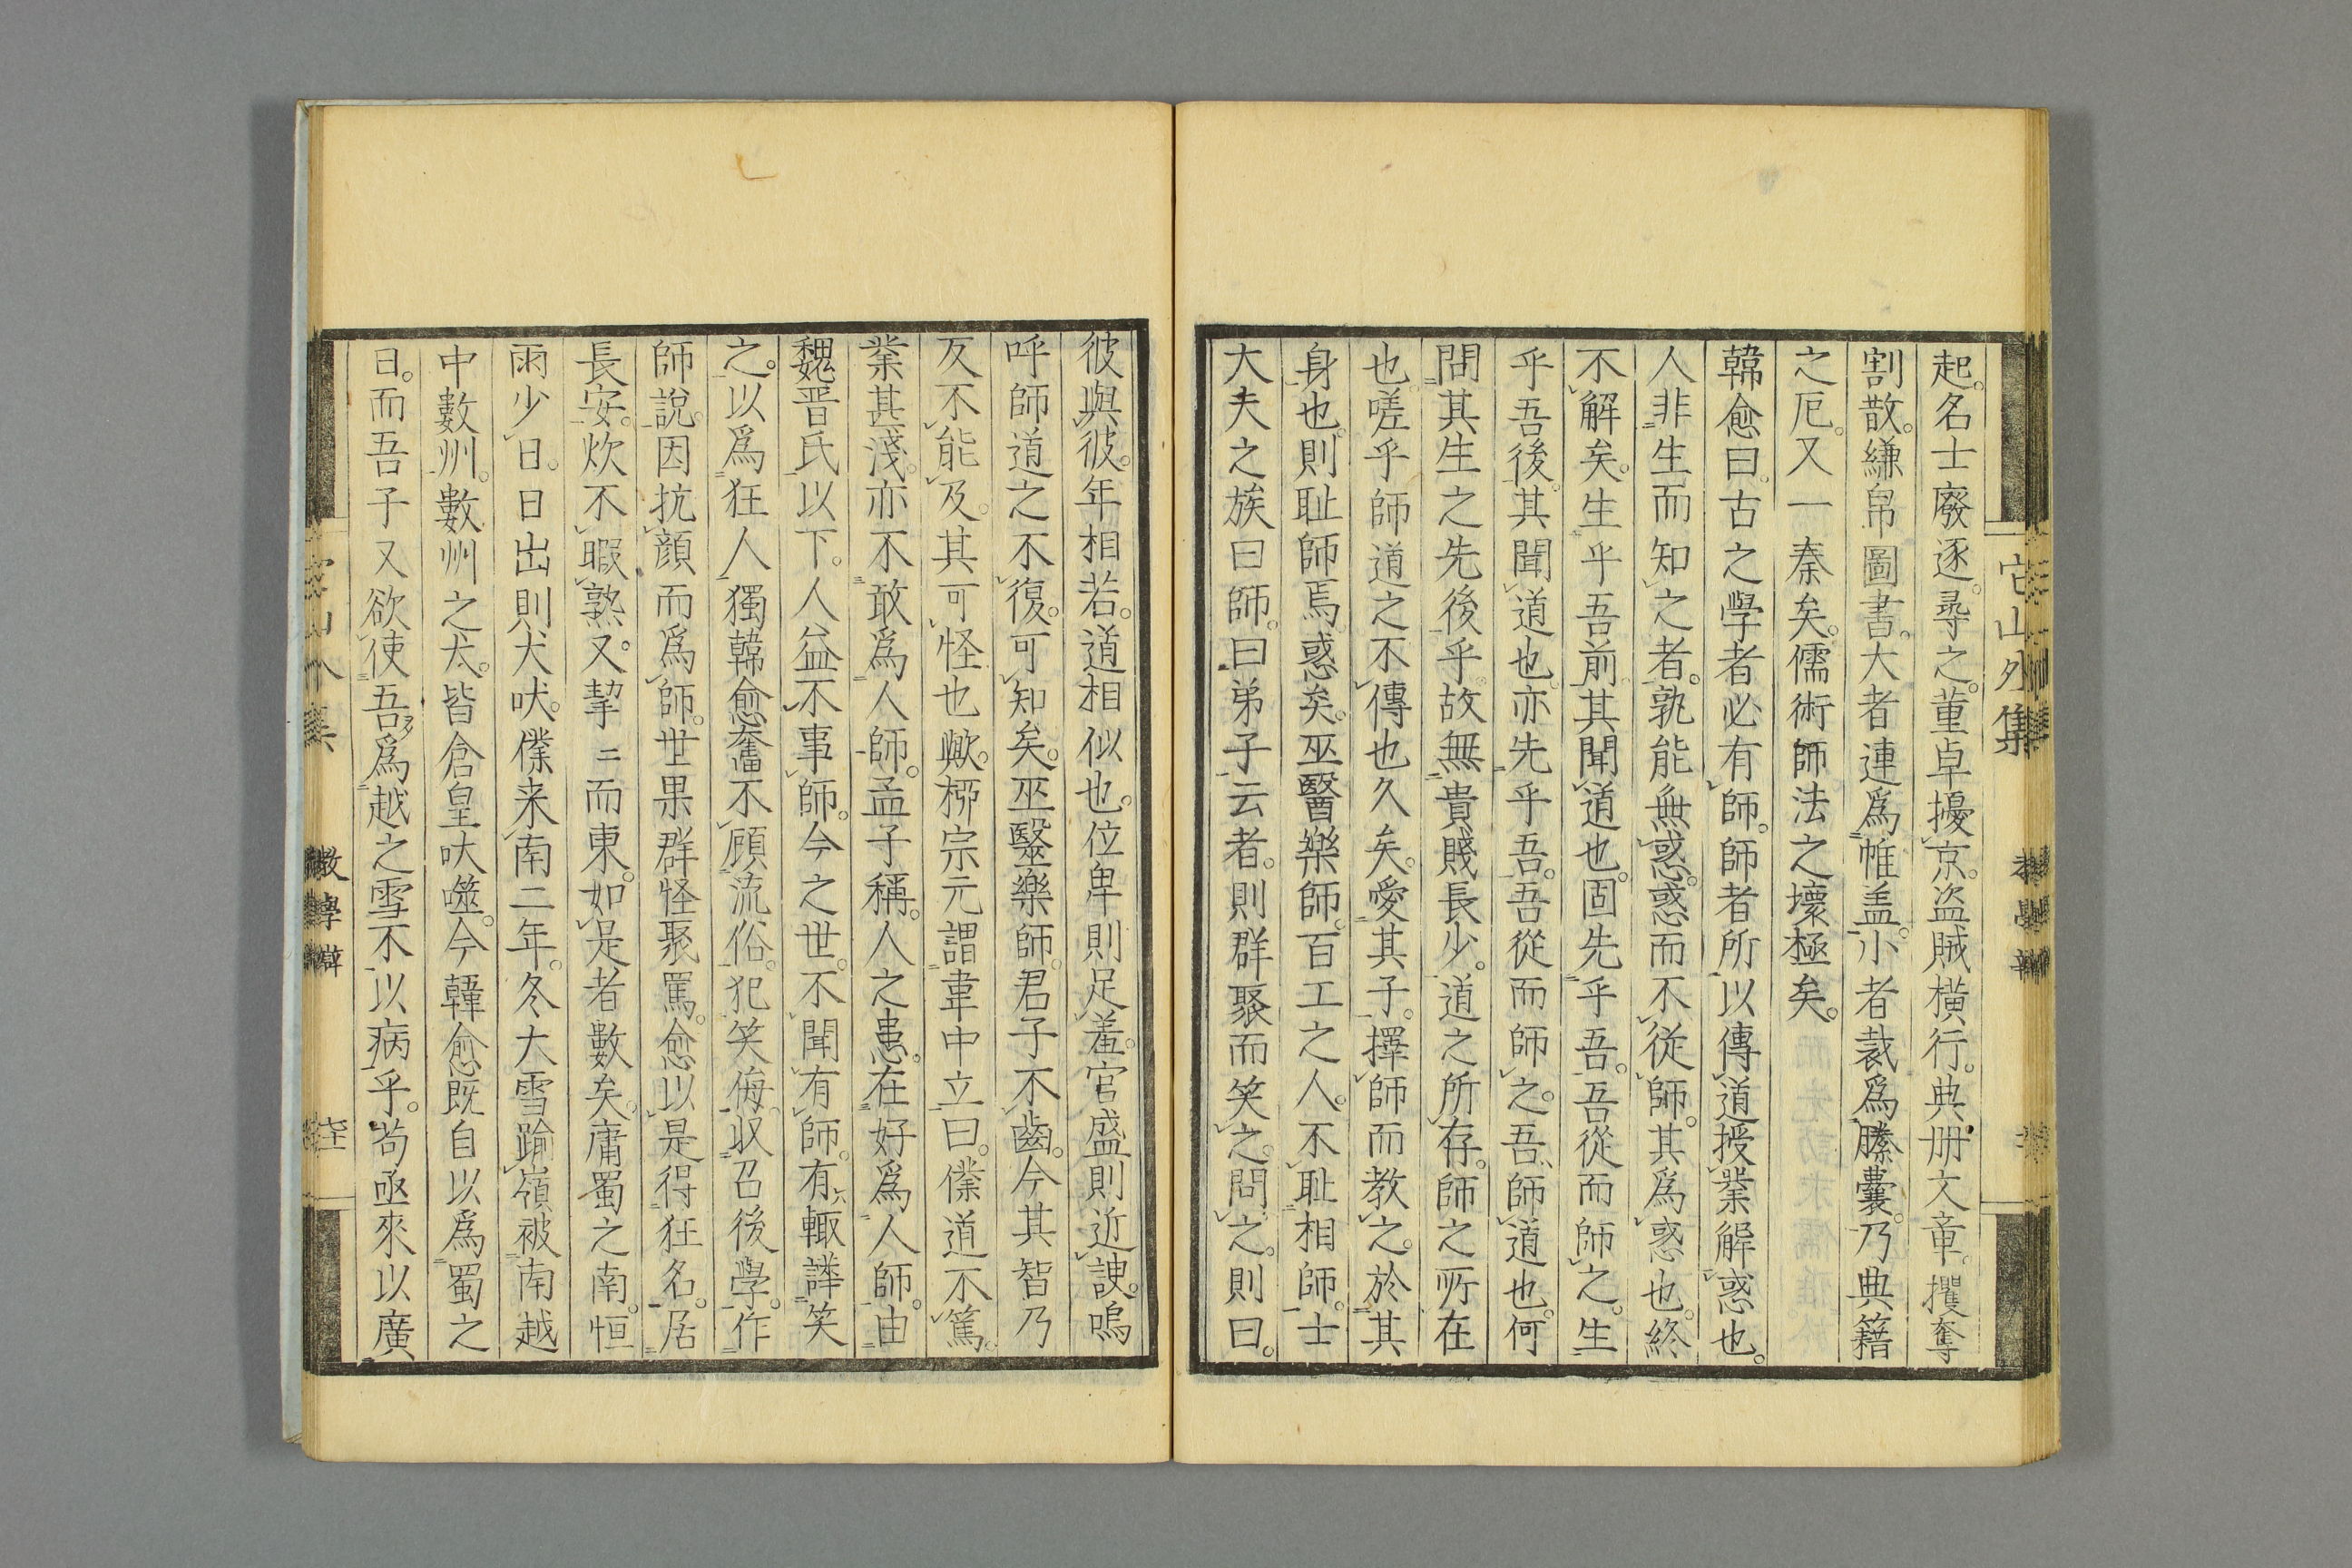 起。名士廢逐。尋之。董卓擾京。盗賊横行。典册文章。攫奪
割散。縑帛圖書。大者連爲帷盖。小者裁爲縢囊。乃典籍
之厄。又一秦矣。儒術師法之壞極矣。
韓愈曰。古之學者必有師。師者所以傳道授業解惑也。
人非生而知之者。孰能無惑。惑而不從師。其爲惑也。終
不解矣。生乎吾前。其聞道也。固先乎吾。吾從而師之。生
乎吾後。其聞道也。亦先乎吾。吾從而師之。吾師道也。何
問其生之先後乎。故無貴賤長少。道之所存。師之所在
也。嗟乎師道之不傳也久矣。愛其子。擇師而教之。於其
身也。則耻師焉。惑矣。巫醫樂師。百工之人。不耻相師。士
大夫之族曰師。曰弟子云者。則群聚而笑之。問之。則曰。
它山外集
彼與彼。年相若。道相似也。位卑則足羞。官盛則近諛。嗚
呼師道之不復。可知矣。巫毉樂師。君子不齒。今其智乃
反不能及。其可怪也歟。栁宗元謂韋中立曰。僕道不篤。
業甚淺。亦不敢爲人師。孟子稱。人之患。在好爲人師。由
魏晋氏以下。人益不事師。今之世。不聞有師。有輙譁笑
之。以爲狂人。獨韓愈奮不顧流俗。犯笑侮。収召後學。作
師說。因抗顔而爲師。世果群怪聚罵。愈以是得狂名。居
長安。炊不暇熟。又挈〻而東。如是者數矣。庸蜀之南。恒
雨少日。日出則犬吠。僕来南二年。冬大雪踰嶺被南越
中數州。數州之犬。皆倉皇吠噬。今韓愈既自以爲蜀之
日。而吾子又欲使吾爲越之雪。不以病乎。苟亟來以廣
教學辯